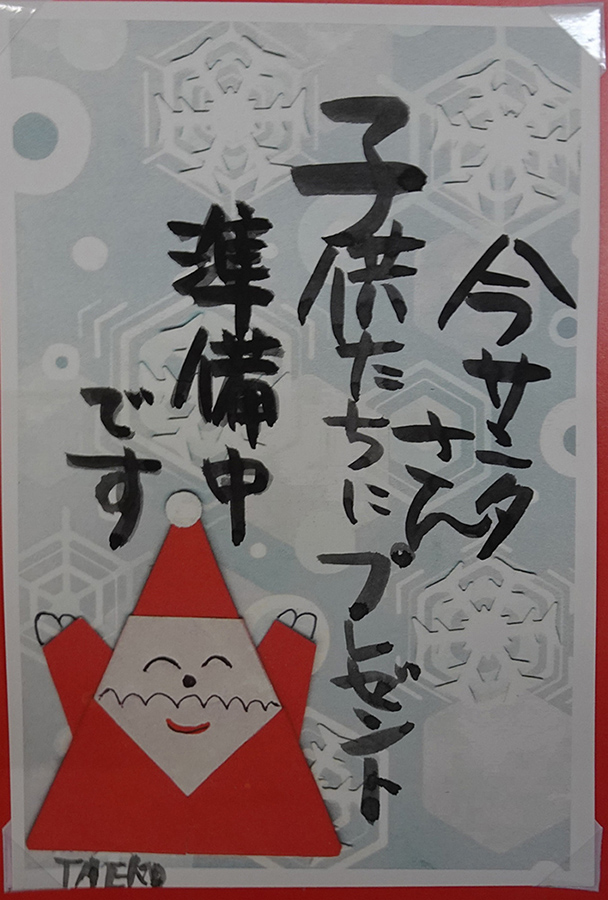 今サンタ
さん
子供たちにプレゼント
準備中
です
TAEKO